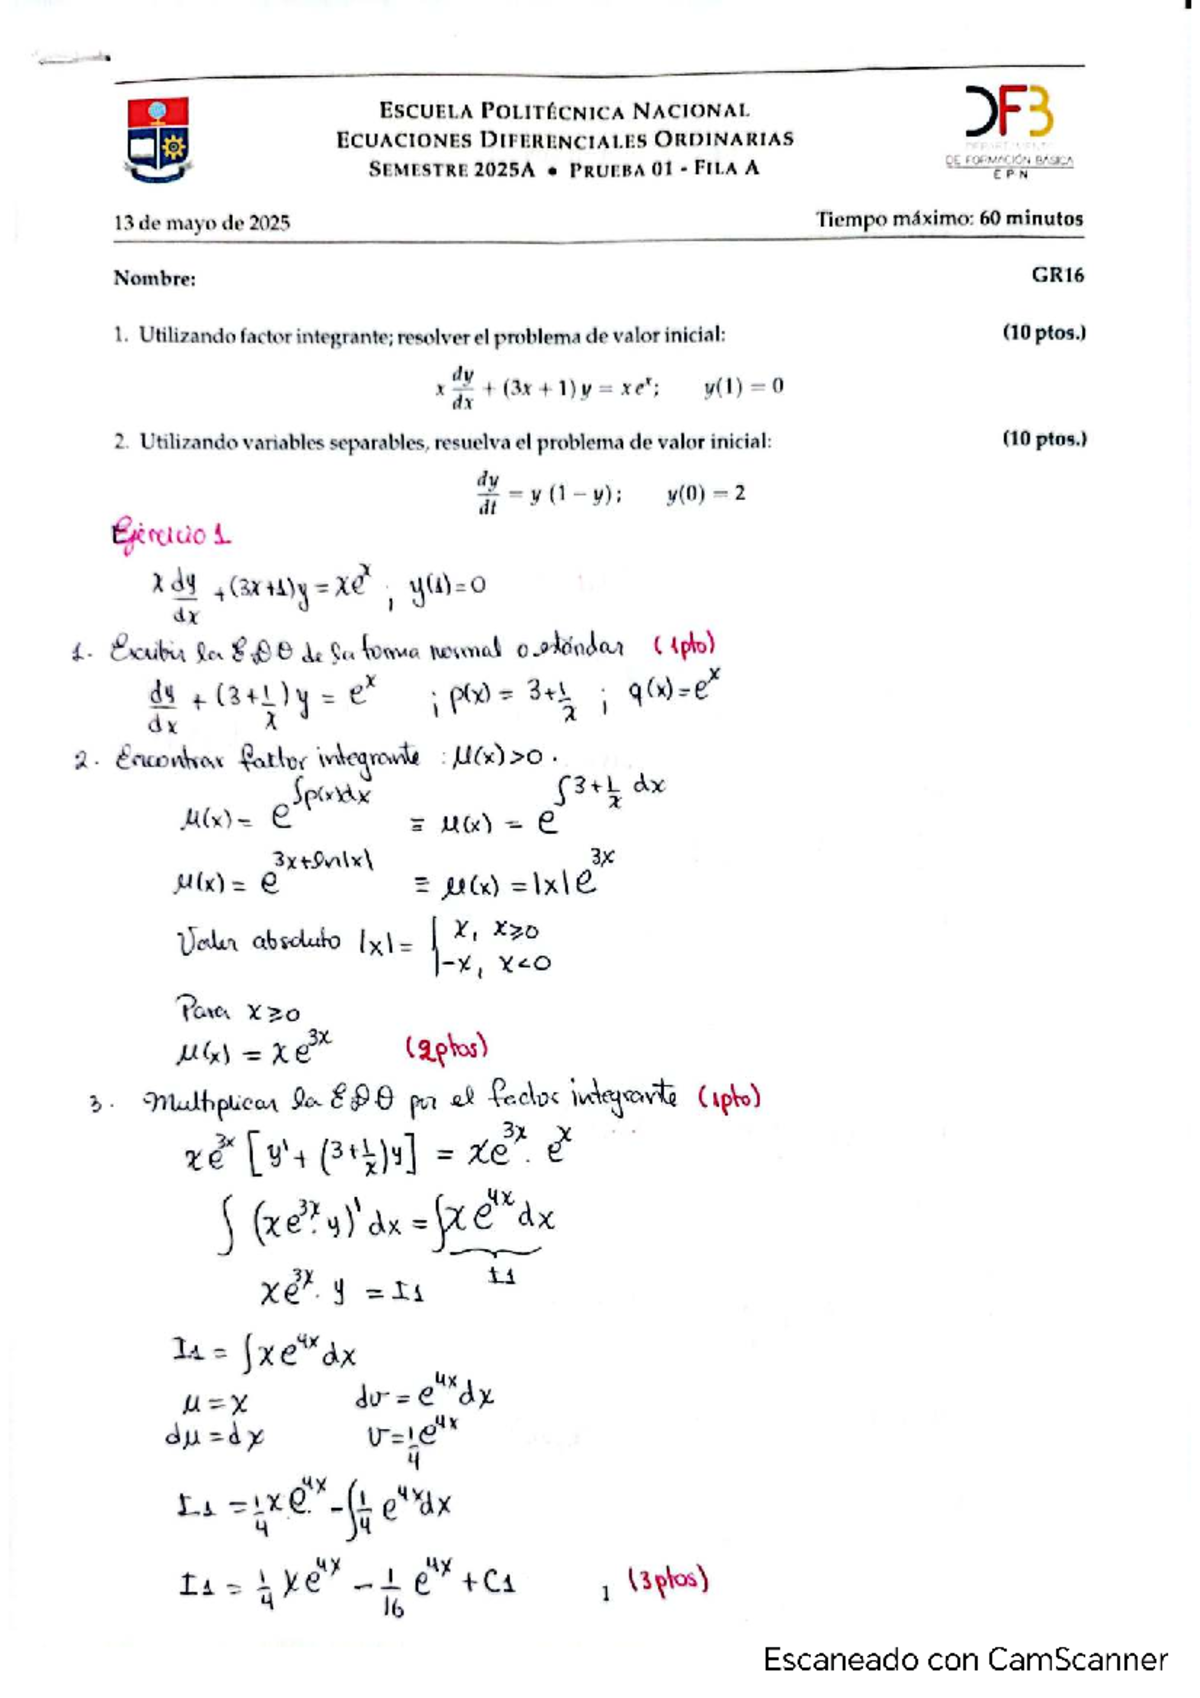 ESCUELA POLITÉCNICA NACIONAL
ECUACIONES DIFERENCIALES ORDINARIAS
SEMESTRE 2025A • PRUEBA 01 - FILA A
DFB
DEPARTAMENTO
DE FORMACIÓN BÁSICA
EPN
13 de mayo de 2025 Tiempo máximo: 60 minutos
Nombre: GR16
1. Utilizando factor integrante; resolver el problema de valor inicial: (10 ptos.)
x dy/dx + (3x + 1) y = x e^x; y(1) = 0
2. Utilizando variables separables, resuelva el problema de valor inicial: (10 ptos.)
dy/dt = y (1 − y); y(0) = 2
Ejercicio 1
x dy/dx + (3x+1)y = xe^x ; y(1)=0
1. Escribir la EDO de la forma normal o estándar (1pto)
dy/dx + (3+1/x)y = e^x ; p(x) = 3+1/x ; q(x)=e^x
2. Encontrar factor integrante : μ(x)>0.
μ(x)= e^∫p(x)dx ≡ μ(x) = e^∫3+1/x dx
μ(x)= e^3x+ln|x| ≡ μ(x) = |x|e^3x
Valor absoluto |x|= { x, x≥0
-x, x<0
Para x≥0
μ(x) = xe^3x (2ptos)
3. Multiplicar la EDO por el factor integrante (1pto)
xe^3x [y' + (3+1/x)y] = xe^3x . e^x
∫ (xe^3x. y)' dx = ∫xe^4x dx
I1
xe^3x. y = I1
I1 = ∫xe^4x dx
μ = x dv = e^4x dx
dμ = dx v = 1/4 e^4x
I1 = 1/4 xe^4x - ∫1/4 e^4x dx
I1 = 1/4 xe^4x - 1/16 e^4x + C1 , (3ptos)
Escaneado con CamScanner